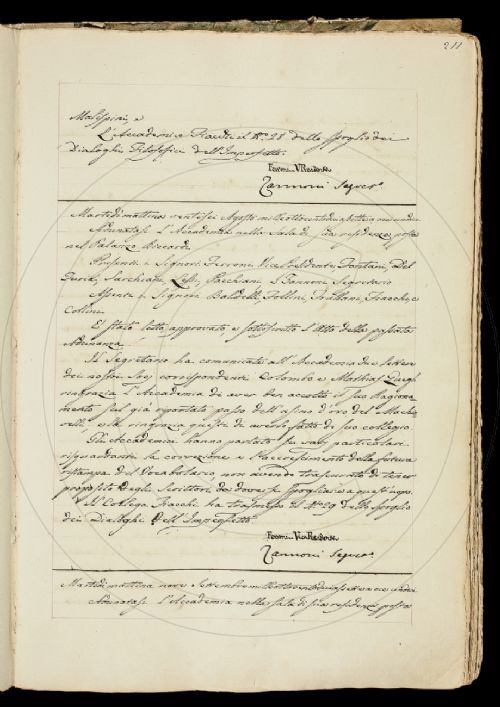 211
Malespini, e
L'Accademico Fiacchi il N.o 28 dello spoglio dei
Dialoghi Filosofici dell'Imperfetto.
Ferroni V. Presidente
Zannoni Segret.o
Martedì mattina ventisei Agosto mille ottocento diciassette a ore undici
Adunatasi l'Accademia nella Sala di sua residenza posta
nel Palazzo Riccardi.
Presenti i Signori Ferroni Vice Presidente, Fontani, Del
Furia, Sarchiani, Lessi, Paichiani, e Zannoni Segretario
Assenti i Signori Baldelli, Follini, Frullani, Fiacchi, e
Collini.
È stato letto approvato, e sottoscritto l'Atto della passata
Adunanza.
Il Segretario ha comunicate all'Accademia due lettere
dei nostri Socj corrispondenti Colombo e Mathias. Quegli
ringrazia l'Accademia di aver ben accolto il suo Ragiona
mento sul già riportato passo dell'asino d'oro del Machia
velli, e la ringrazia questi di averlo fatto di suo collegio.
Gli Accademici hanno parlato su varj particolari
risguardanti la correzione e l'accrescimento della futura
ristampa del Vocabolario, non avendo trascurato di tener
proposito degli Scrittori da doversi spogliare a quest'uopo.
Il Collega Fiacchi ha trasmesso il N.o 29 dello spoglio
dei Dialoghi dell'Imperfetto.
Ferroni Vice Presidente
Zannoni Segret.o
Martedì mattina nove Settembre mille ottocento diciassette a ore undici
Adunatasi l'Accademia nella sala di sua residenza posta